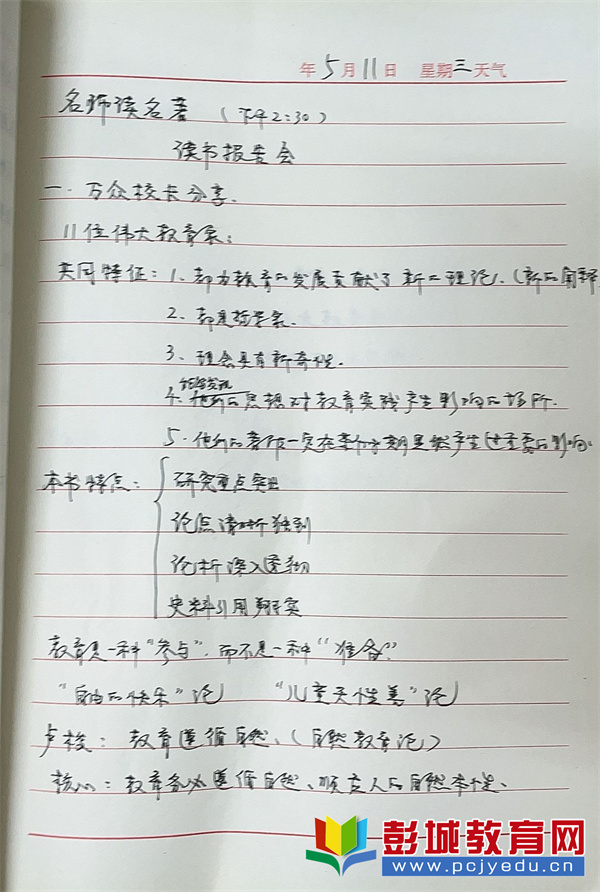 年5月11日 星期三天气
名师读名著 (下午2:30)
读书报告会
一、万众校长分享.
11位伟大教育家:
共同特征: 1、都为教育的发展贡献了新的理论.(新的阐释
2、都是哲学家.
3、理念具有新奇性.
能够发现
4、他们的思想对教育实践产生影响的场所.
5、他们的著作一定在某个时期里然产生过重要的影响.
本书特点:
研究重点突出
论点清晰独到
论析深入透彻
史料引用翔实
教育是一种“参与”,而不是一种“准备”
“自由的快乐”论 “儿童天性善”论
卢梭: 教育遵循自然、(自然教育论)
核心: 教育务必遵循自然、顺应人的自然本性.
彭城教育网
www.pcjyedu.cn